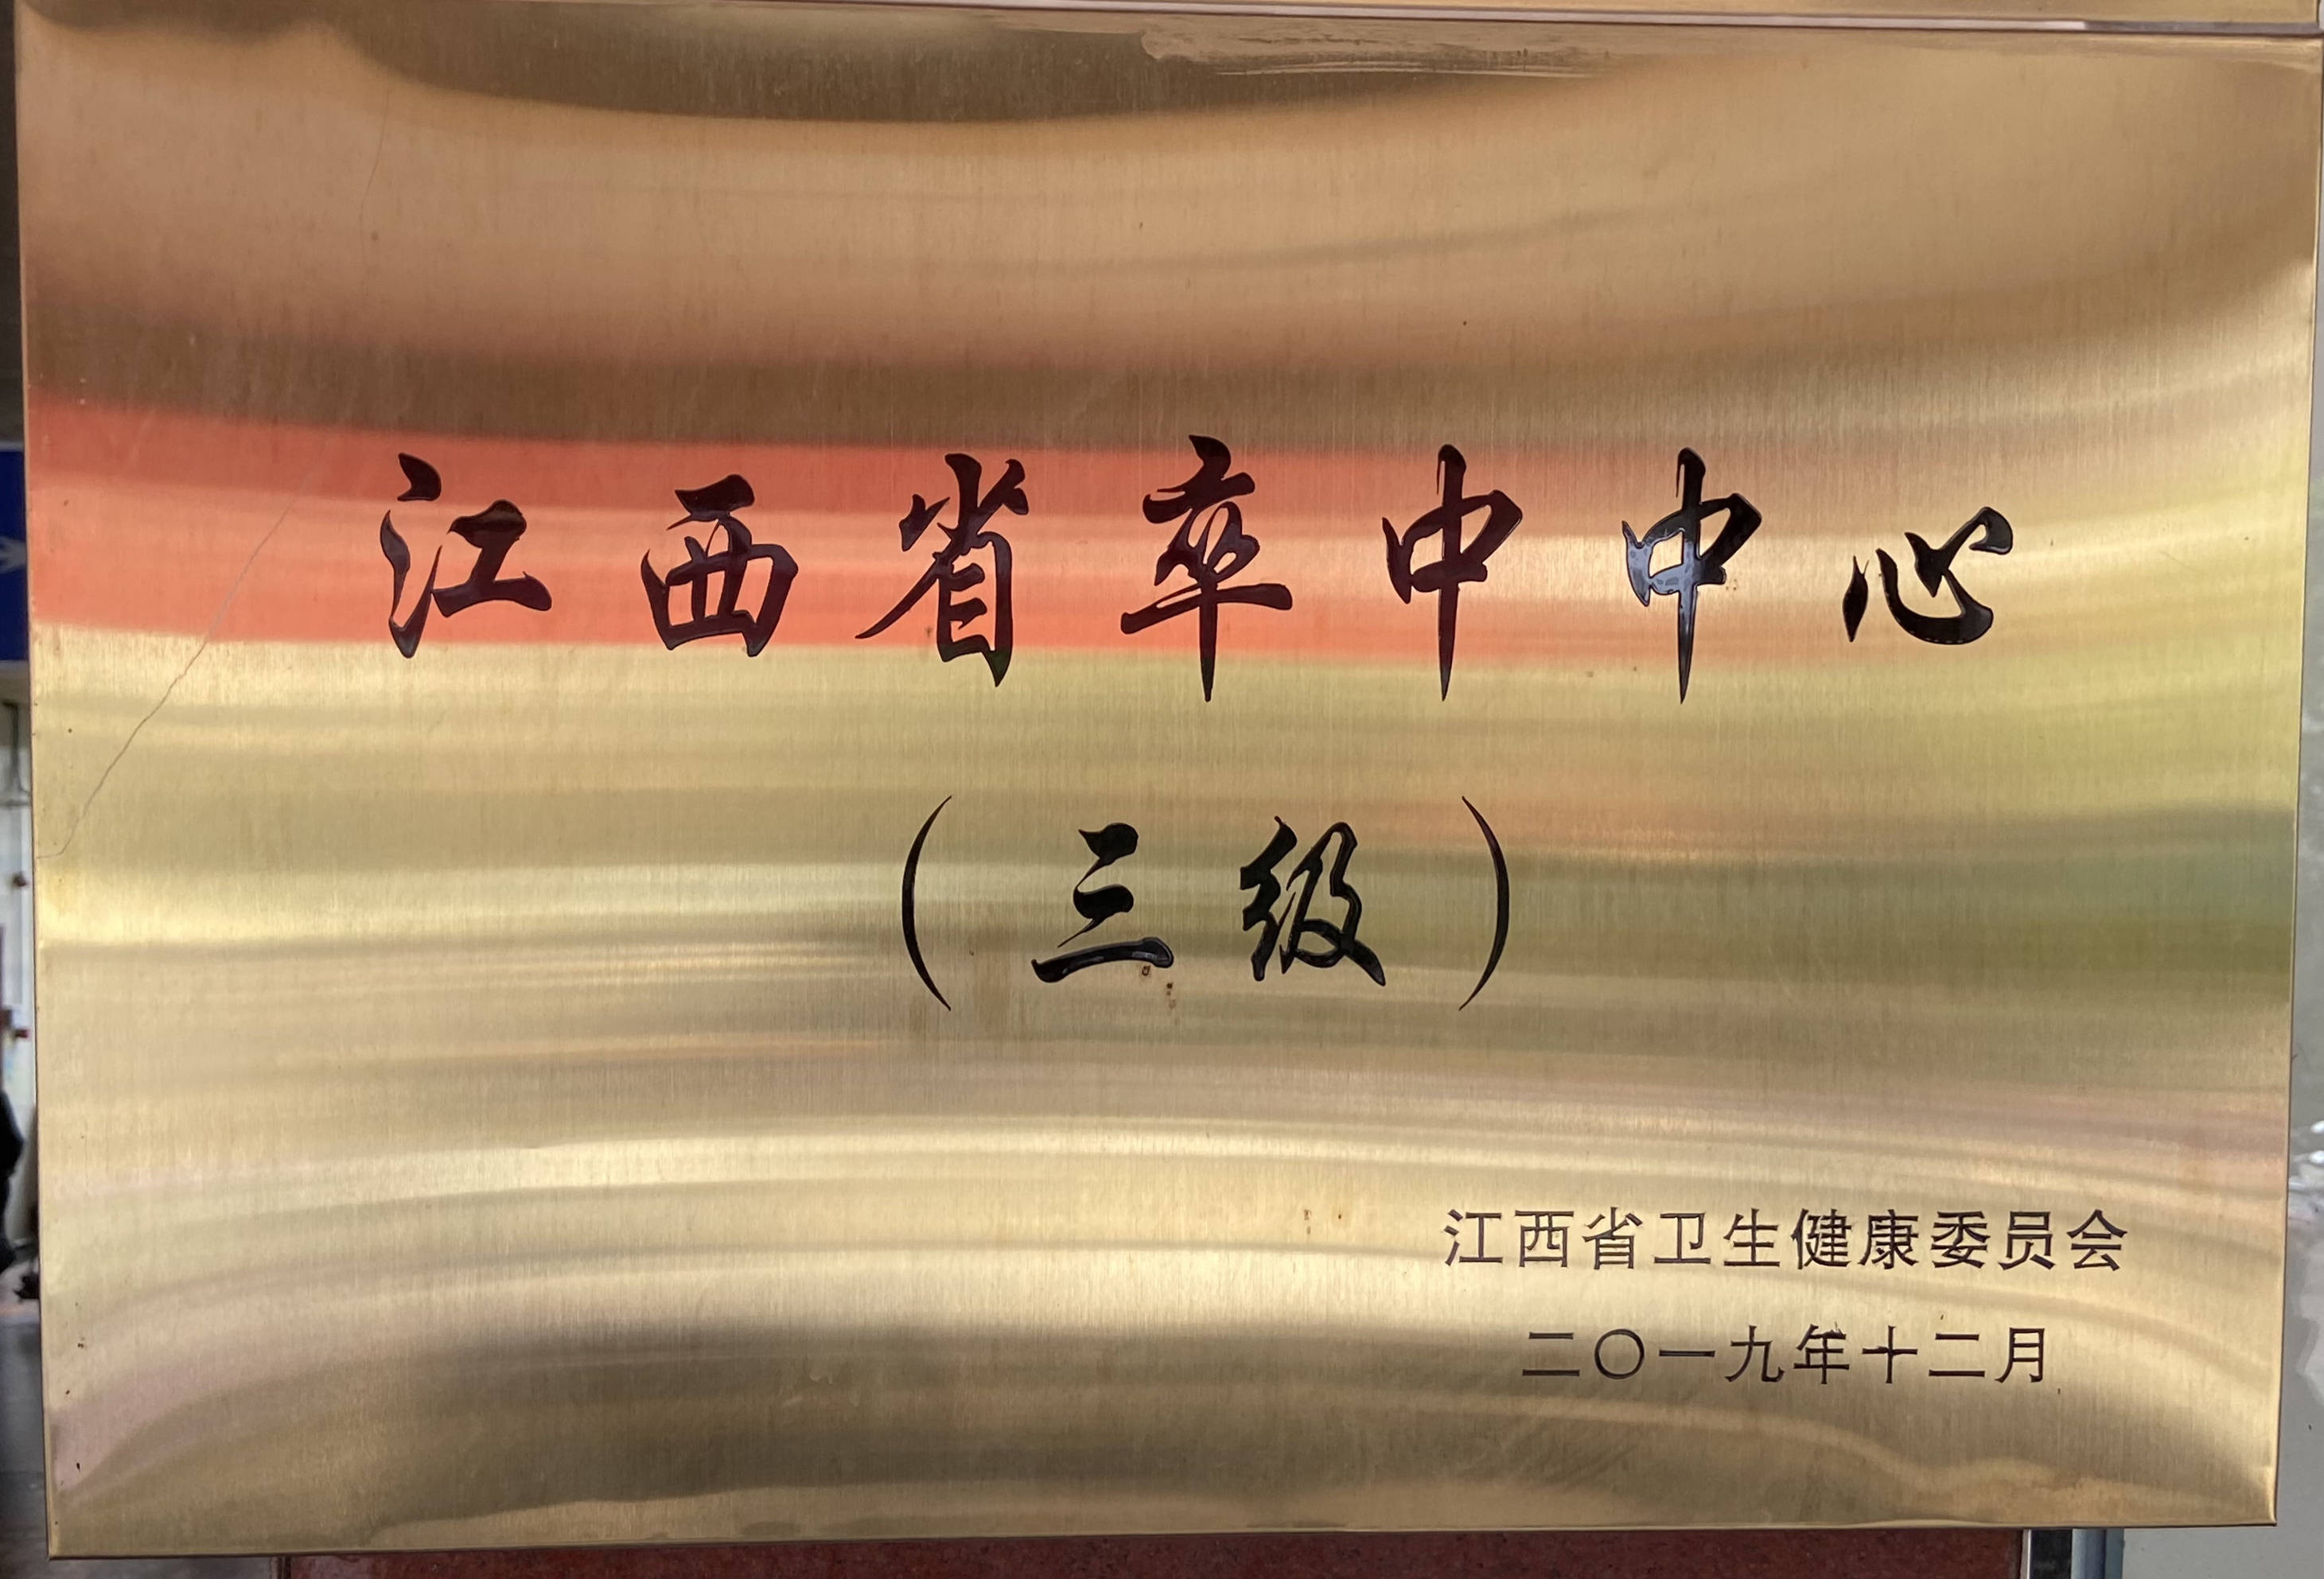 江西省卒中中心
（三级）
江西省卫生健康委员会
二〇一九年十二月